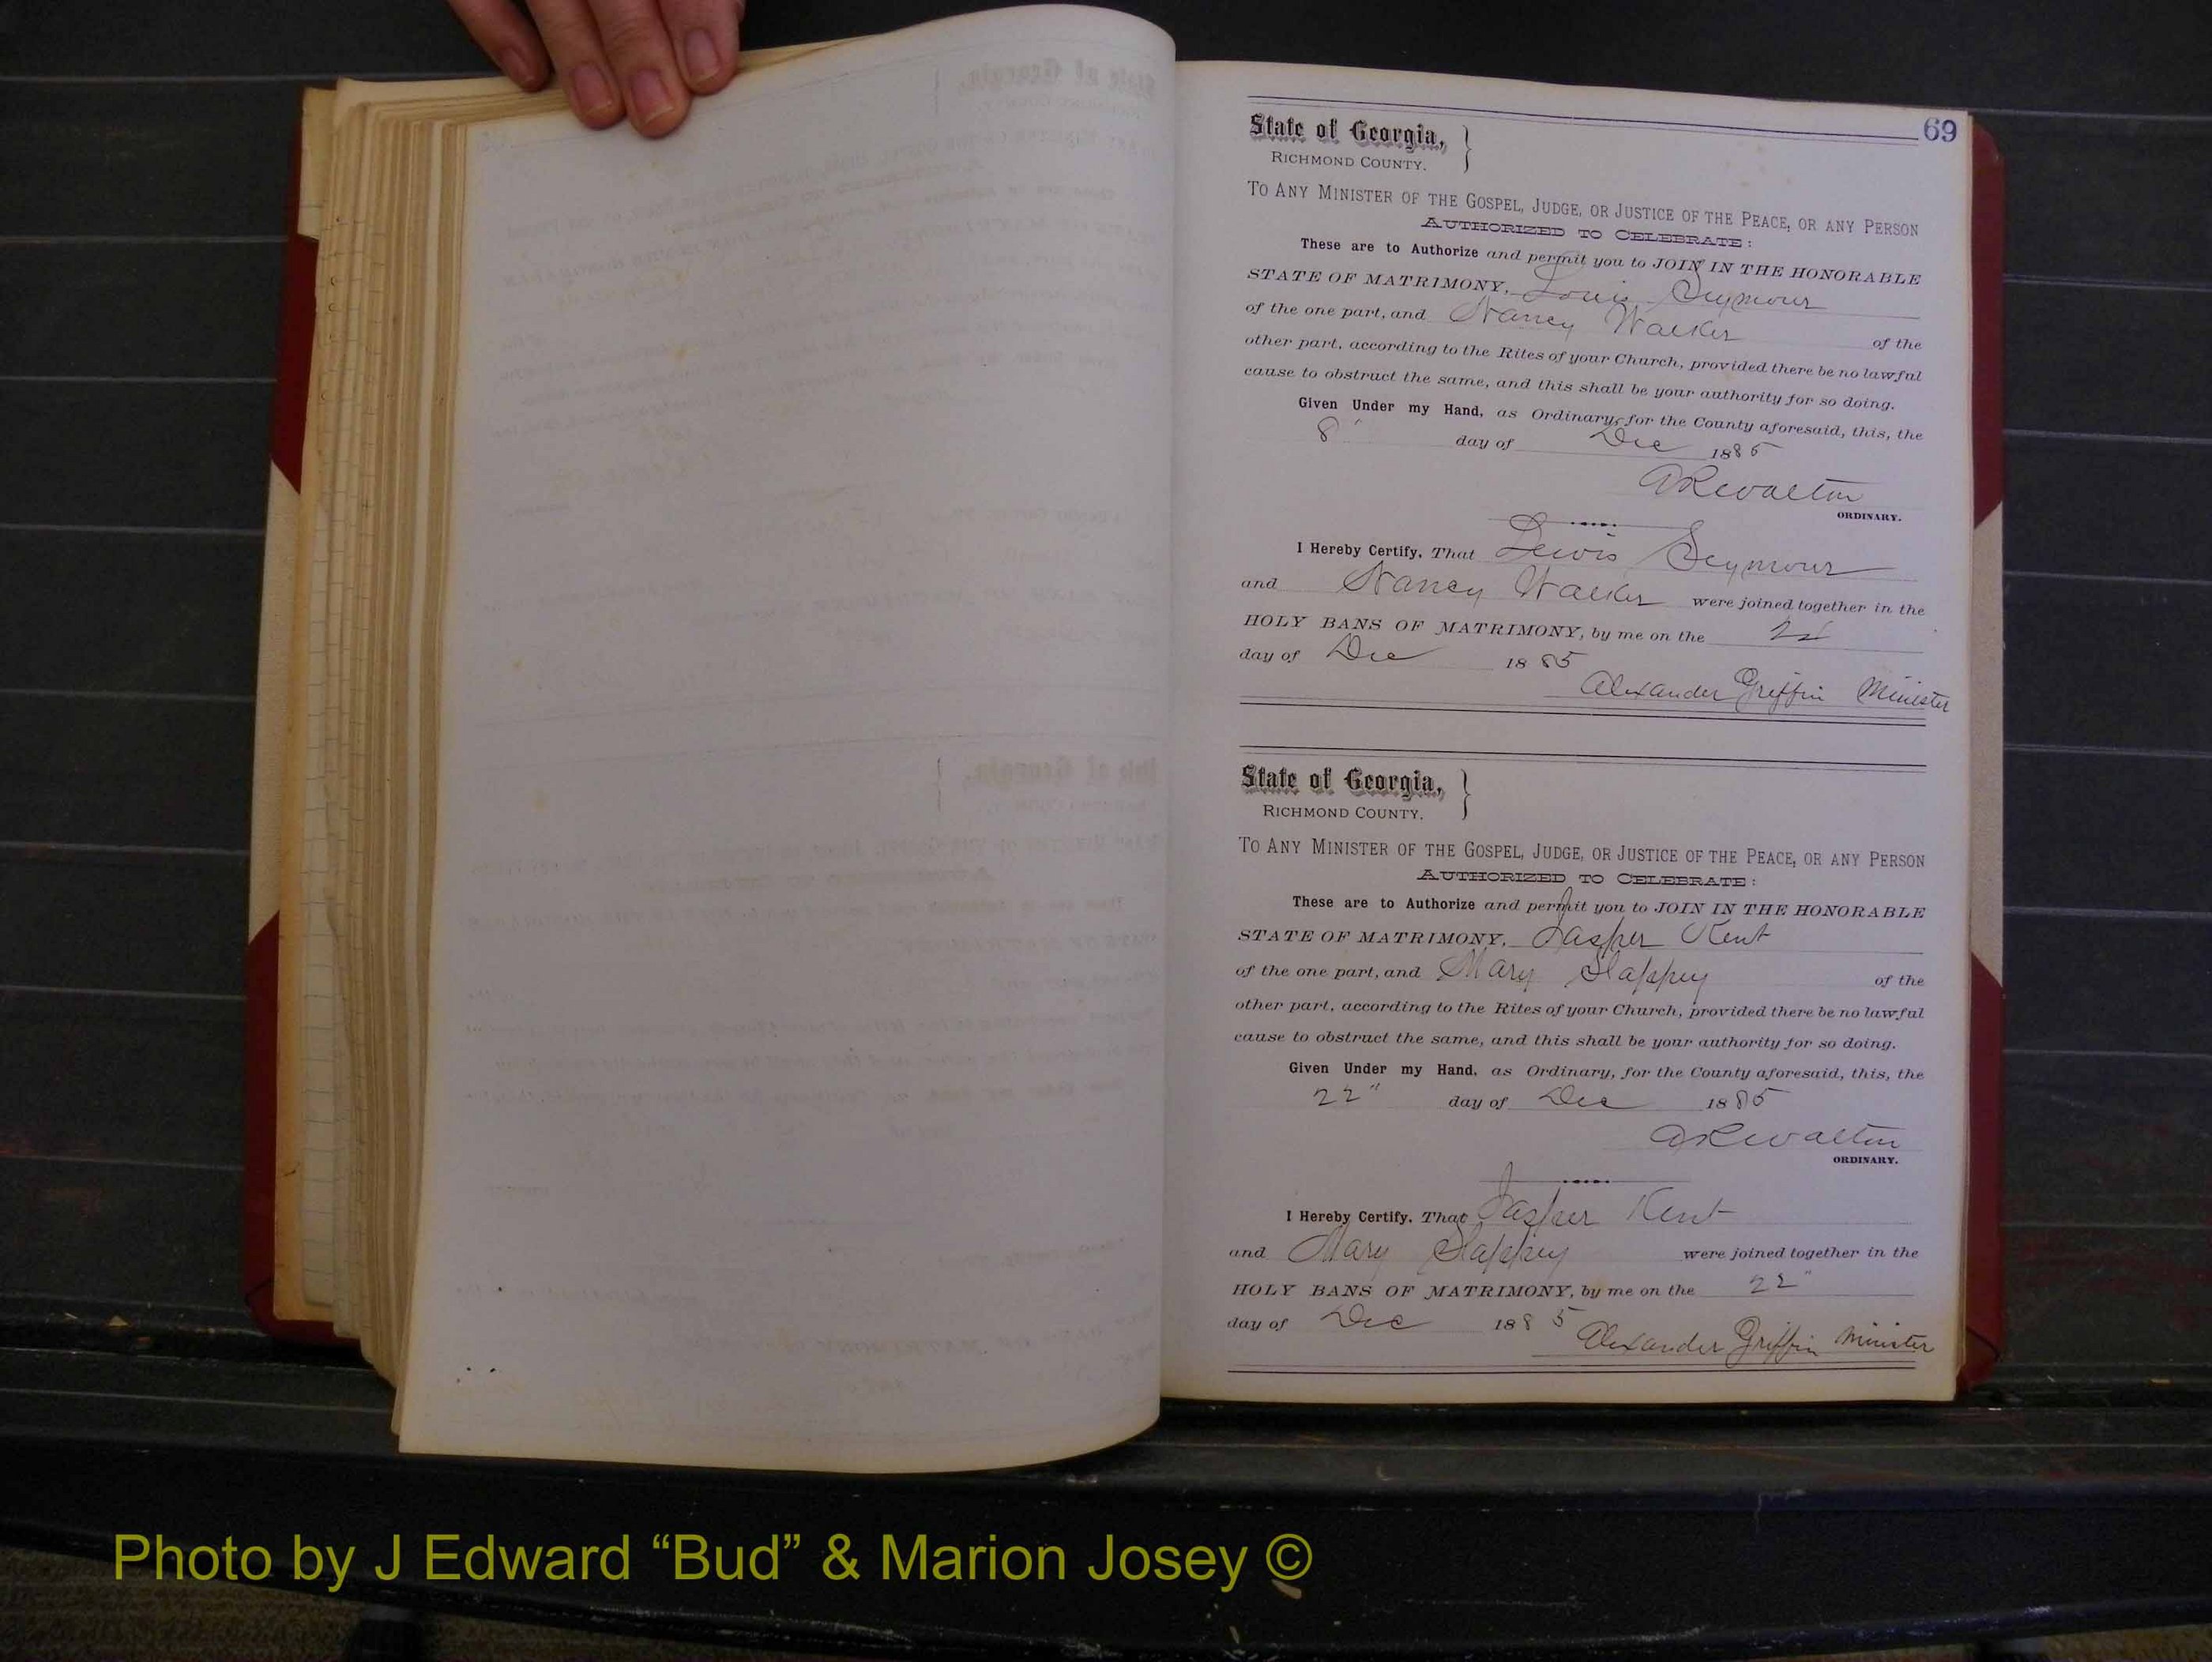 69
State of Georgia, }
RICHMOND COUNTY.
TO ANY MINISTER OF THE GOSPEL, JUDGE, OR JUSTICE OF THE PEACE, OR ANY PERSON
AUTHORIZED TO CELEBRATE:
These are to Authorize and permit you to JOIN IN THE HONORABLE
STATE OF MATRIMONY, Louis Seymour
of the one part, and Nancy Walker of the
other part, according to the Rites of your Church, provided there be no lawful
cause to obstruct the same, and this shall be your authority for so doing.
Given Under my Hand, as Ordinary, for the County aforesaid, this, the
8" day of Dec 1885
A R Walton
ORDINARY.
I Hereby Certify, That Lewis Seymour
and Nancy Walker were joined together in the
HOLY BANS OF MATRIMONY, by me on the
day of Dec 1885
Alexander Griffin Minister
State of Georgia, }
RICHMOND COUNTY.
TO ANY MINISTER OF THE GOSPEL, JUDGE, OR JUSTICE OF THE PEACE, OR ANY PERSON
AUTHORIZED TO CELEBRATE:
These are to Authorize and permit you to JOIN IN THE HONORABLE
STATE OF MATRIMONY, Jasper Kent
of the one part, and Mary Slappey of the
other part, according to the Rites of your Church, provided there be no lawful
cause to obstruct the same, and this shall be your authority for so doing.
Given Under my Hand, as Ordinary, for the County aforesaid, this, the
22" day of Dec 1885
A R Walton
ORDINARY.
I Hereby Certify, That Jasper Kent
and Mary Slappey were joined together in the
HOLY BANS OF MATRIMONY, by me on the 22"
day of Dec 1885
Alexander Griffin Minister
Photo by J Edward “Bud” & Marion Josey ©